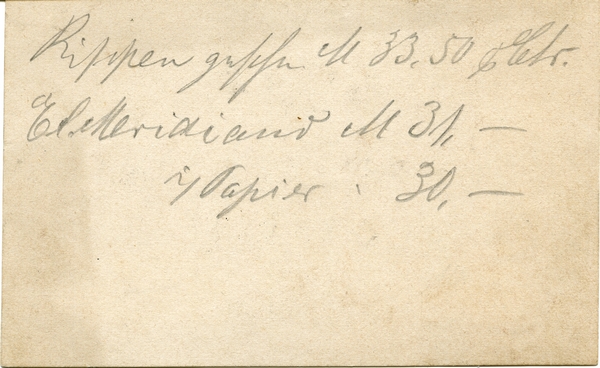 Rippen gusseis M 33.50 p Ctr.
El. Meridiand M 31, —
i/ Papier . 30, —